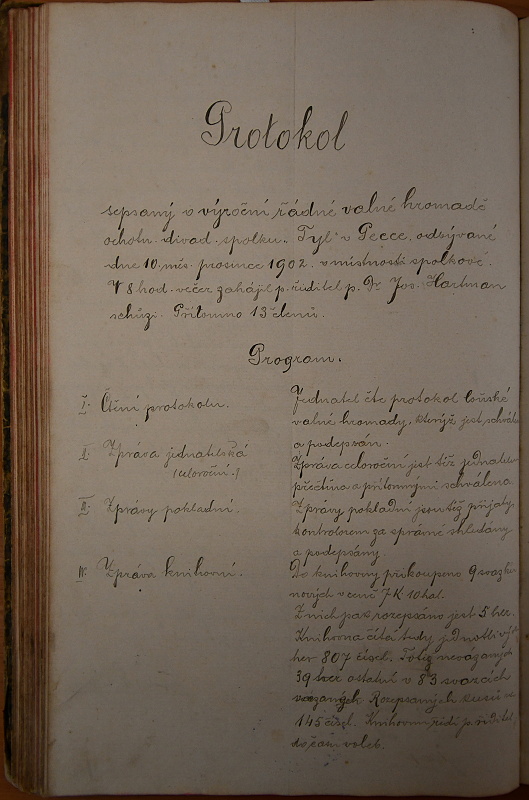 Protokol
sepsaný o výroční řádné valné hromadě
ochotn. divad. spolku „Tyl“ v Pecce, odbývané
dne 10. měs. prosince 1902. v místnosti spolkové.
V 8 hod. večer zahájil p. ředitel p. Dr Jos. Hartman
schůzi. Přítomno 13 členů.
Program.
I. Čtení protokolu. Jednatel čte protokol loňské
valné hromady, kterýž jest schválen
a podepsán.
II. Zpráva jednatelská Zpráva celoroční jest též jednatelem
(celoroční.) přečtína a přítomnými schválena.
III. Zprávy pokladní. Zprávy pokladní jsou též přijaty
kontrolorem za správné shledány
a podepsány.
IV. Zpráva knihovní. Do knihovny přikoupeno 9 svazků
nových v ceně 7 K 10 hal.
Z nich pak rozepsáno jest 5 her.
Knihovna čítá tedy jednotlivých
her 807 čísel. nevázaných
39 her ostatní v 83 svazcích
vázaných. Rozepsaných kusů
145 čísel. Knihovnu řídí p. ředitel
do čas. voleb.